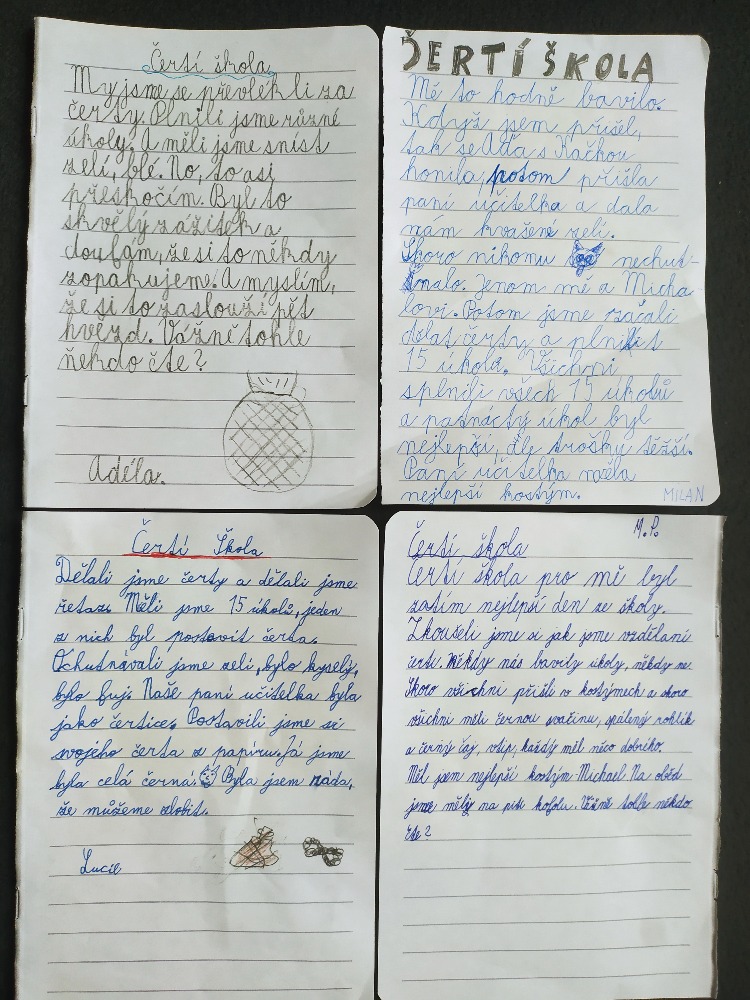 Čertí škola
My jsme se převlékli za
čerty. Plnili jsme různé
úkoly. A měli jsme sníst
zelí, blé. No, to asi
přeskočím. Byl to
skvělý zážitek a
doufám, že si to někdy
zopakujeme. A myslím,
že si to zaslouží pět
hvězd. Vážně tohle
někdo čte?
Adéla.
ČERTÍ ŠKOLA
Mě to hodně bavilo.
Když jsem přišel,
tak se Ada s Kačkou
honila, potom přišla
paní učitelka a dala
nám kvašené zelí.
Skoro nikomu nechut-
nalo. Jenom mě a Micha-
lovi. Potom jsme začali
dělat čerty a plnit
15 úkolů. Všichni
splnili všech 15 úkolů
a patnáctý úkol byl
nejlepší, ale trošku těžší.
Paní učitelka měla
nejlepší kostým.
MILAN
Čertí škola
Dělali jsme čerty a dělali jsme
řetaz. Měli jsme 15 úkolů, jeden
z nich byl postavit čerta.
Ochutnávali jsme zelí, bylo kyselý,
bylo fuj. Naše paní učitelka byla
jako čertice. Postavili jsme si
svojého čerta z papíru. Já jsme
byla celá černá. Byla jsem ráda,
že můžeme zlobit.
Lucie
M.P.
Čertí škola
Čertí škola pro mě byl
zatím nejlepší den ze školy.
Zkoušeli jsme si jak jsme vzdělaní
čerti. Někdy nás bavily úkoly, někdy ne.
Skoro všichni přišli v kostýmech a skoro
všichni měli černou svačinu, spálený rohlík
a černý čaj, vtip, každý měl něco dobrého.
Měl jsem nejlepší kostým Michael Na oběd
jsme měly na pití kofolu. Vážně tohle někdo
čte?